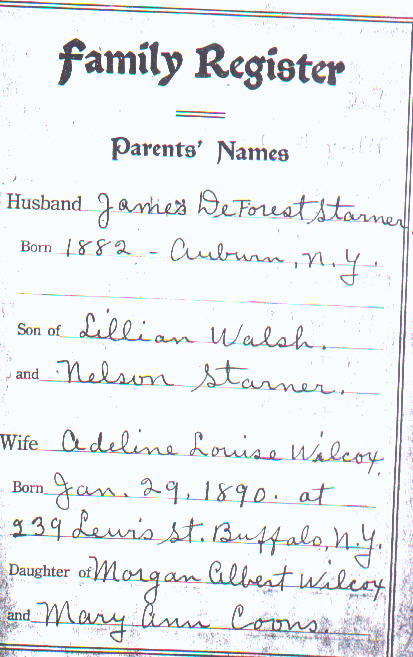 Family Register
Parents' Names
Husband James DeForest Starner
Born 1882 - Auburn, N.Y.
Son of Lillian Walsh.
and Nelson Starner.
Wife Adeline Louise Wilcox
Born Jan. 29, 1890. at
239 Lewis St. Buffalo, N.Y.
Daughter of Morgan Albert Wilcox
and Mary Ann Coons.